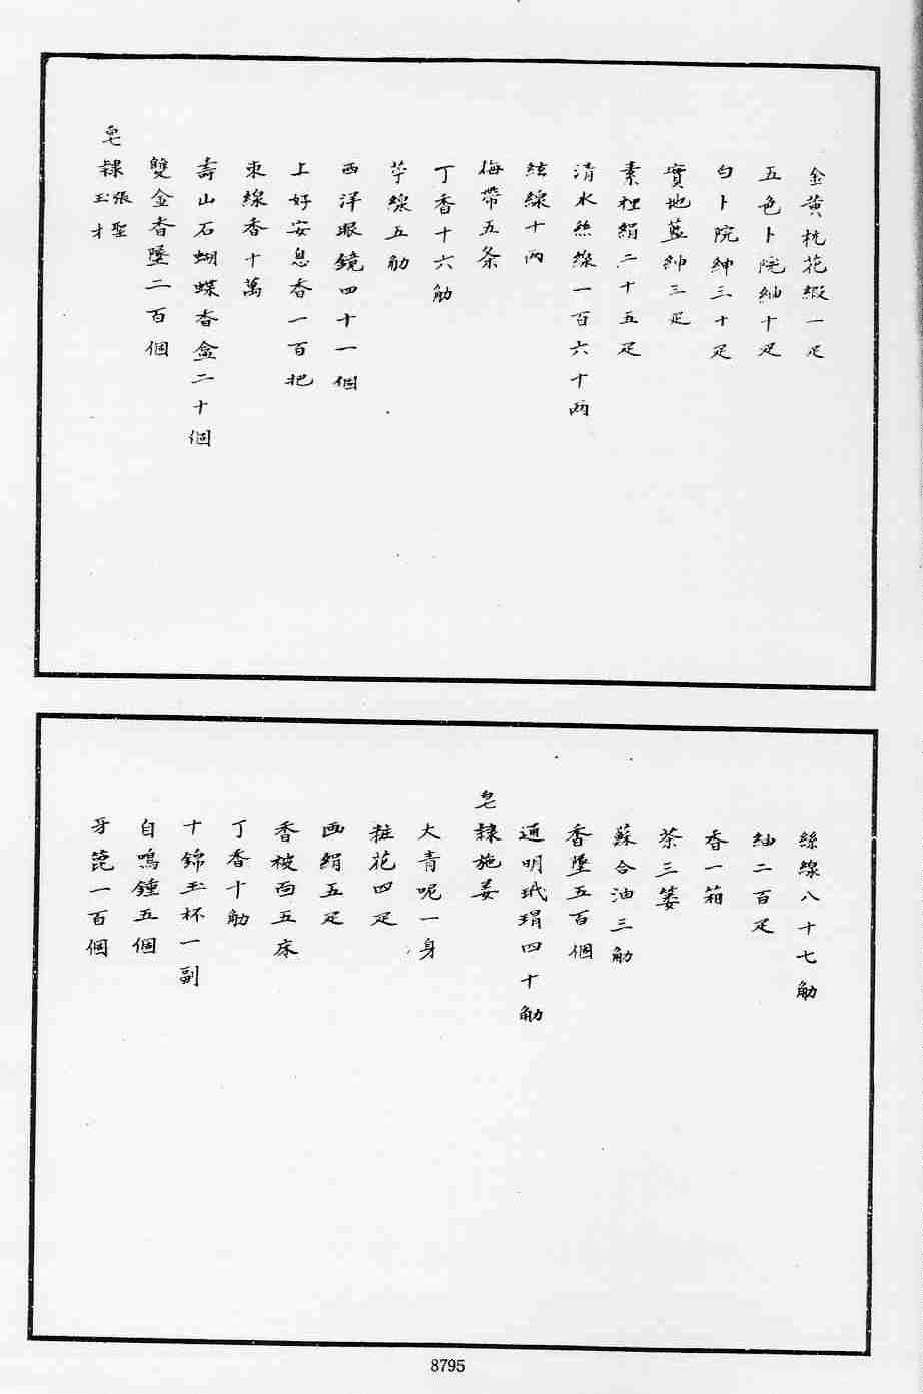 金黄枕花緞一疋
五色卜院紬十疋
白卜院紳三十疋
實地藍紳三疋
素裡絹二十五疋
清水絲線一百六十两
絃線十两
梅帶五条
丁香十六觔
苧線五觔
西洋眼鏡四十一個
上好安息香一百把
束線香十萬
壽山石蝴蝶香盒二十個
雙金香墜二百個
皂隸張聖
玉才
絲線八十七觔
紬二百疋
香一箱
茶三簍
蘇合油三觔
香墜五百個
通明玳瑁四十觔
皂隸施姜
大青呢一身
粧花四疋
画絹五疋
香被面五床
丁香十觔
十錦玉杯一副
自鳴鍾五個
牙篦一百個
8795